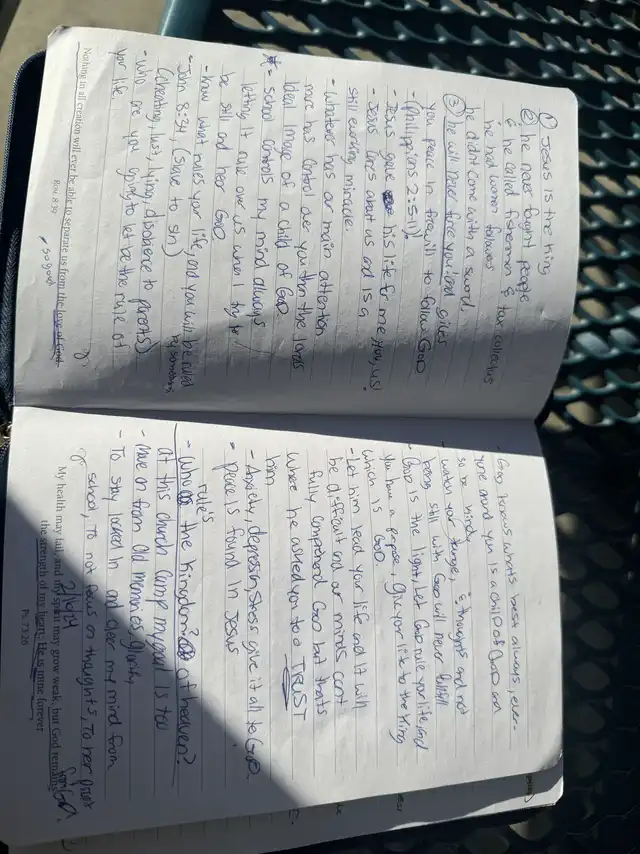 ① Jesus is the king
② he never fought people
& he called fisherman & tax collectors
he had women followers
he didnt come with a sword.
③ he will never force you! and gives
you peace in freewill to follow GOD
- (Philippians 2:5-11)
- Jesus gave his life for me, you, us!
- Jesus cares about us and is a
still working miracle
- Whatever has our main attention
more has control over you than the lords
Ideal image of a child of GOD
- School controls my mind always
letting it rule over us when I try to
be still and hear GOD
- how what rules your life, and you will be ruled
by something
- John 8:34, (slave to sin)
(Cheating, lust, lying, disobience to parents)
- Who are you going to let be the rule of
you life.
Nothing in all creation will ever be able to separate us from the love of God.
Rom 8:39
so good
- God knows whats best always, ever-
yone around you is a child of GOD and
so be kind,
- watch your tounge, & thoughts and not
being still with God will never fulfill
- God is the light, Let GOD rule your life, and
you have a purpose, give your life to the King
which is GOD.
- Let him lead your life and It will
be difficult and our minds cant
fully comprehend God but thats
where he asked you to TRUST
him
- Anxiety, depression, stress give it all to GOD.
- peace is found In Jesus
rule's
- who the kingdom of heaven?
at this church camp my goal is too
- move on from old memories,
- To stay locked in and clear my mind from
school, To not focus on thoughts, To hear
from God.
My health may fail, and my spirit may grow weak, but God remains
the strength of my heart; He is mine forever
Ps. 73:26